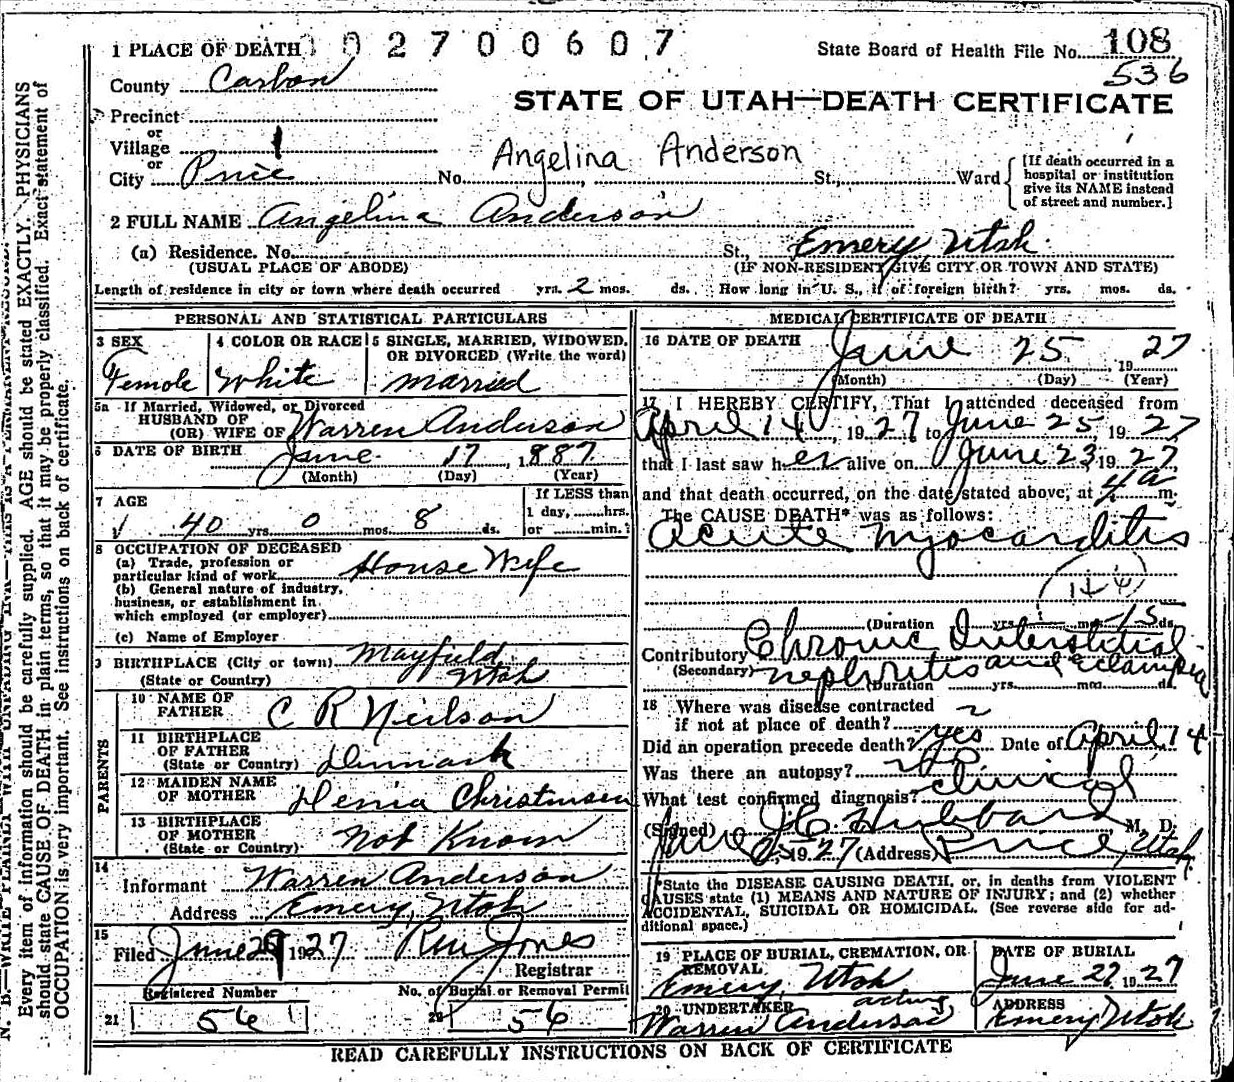 1 PLACE OF DEATH 02700607 State Board of Health File No. 108
536
County Carbon
STATE OF UTAH—DEATH CERTIFICATE
Precinct
or
Village
or
City Price No. Angelina Anderson St., Ward
[If death occurred in a
hospital or institution
give its NAME instead
of street and number.]
2 FULL NAME Angelina Anderson
(a) Residence. No. St., Emery, Utah.
(USUAL PLACE OF ABODE) (IF NON-RESIDENT GIVE CITY OR TOWN AND STATE)
Length of residence in city or town where death occurred yrs. 2 mos. ds. How long in U. S., if of foreign birth? yrs. mos. ds.
PERSONAL AND STATISTICAL PARTICULARS
3 SEX
Female
4 COLOR OR RACE
White
5 SINGLE, MARRIED, WIDOWED,
OR DIVORCED (Write the word)
married
5a If Married, Widowed, or Divorced
HUSBAND OF
(OR) WIFE OF Warren Anderson
6 DATE OF BIRTH June 17, 1887
(Month) (Day) (Year)
7 AGE
40 yrs. 0 mos. 8 ds.
If LESS than
1 day, hrs.
or min.?
8 OCCUPATION OF DECEASED
(a) Trade, profession or
particular kind of work House Wife
(b) General nature of industry,
business, or establishment in
which employed (or employer)
(c) Name of Employer
9 BIRTHPLACE (City or town) Mayfield
(State or Country) Utah
PARENTS
10 NAME OF
FATHER C R Neilson
11 BIRTHPLACE
OF FATHER
(State or Country) Denmark
12 MAIDEN NAME
OF MOTHER Christensen
13 BIRTHPLACE
OF MOTHER
(State or Country) Not Know
14
Informant Warren Anderson
Address Emery, Utah
15
Filed June 29 1927 Jones
Registrar
Registered Number No. of Burial or Removal Permit
21 56 22 56
MEDICAL CERTIFICATE OF DEATH
16 DATE OF DEATH June 25, 1927
(Month) (Day) (Year)
17 I HEREBY CERTIFY, That I attended deceased from
April 14, 1927 to June 25, 1927
that I last saw her alive on June 23 1927
and that death occurred, on the date stated above, at 4a m.
The CAUSE DEATH* was as follows:
Acute Myocarditis
(Duration yrs. mos. 15 ds.
Contributory Chronic Interstitial
(Secondary) nephritis and eclampsia
(Duration yrs. mos. ds.
18 Where was disease contracted
if not at place of death?
Did an operation precede death? yes Date of April 14
Was there an autopsy? no
What test confirmed diagnosis? clinical
(Signed) J C Hubbard, M. D.
June 25, 1927 (Address) Price, Utah
*State the DISEASE CAUSING DEATH, or, in deaths from VIOLENT
CAUSES state (1) MEANS AND NATURE OF INJURY; and (2) whether
ACCIDENTAL, SUICIDAL OR HOMICIDAL. (See reverse side for ad-
ditional space.)
19 PLACE OF BURIAL, CREMATION, OR
REMOVAL
Emery, Utah
DATE OF BURIAL
June 27, 1927
20 UNDERTAKER acting
Warren Anderson
ADDRESS
Emery Utah
READ CAREFULLY INSTRUCTIONS ON BACK OF CERTIFICATE
Every item of information should be carefully supplied. AGE should be stated EXACTLY. PHYSICIANS
should state CAUSE OF DEATH in plain terms, so that it may be properly classified. Exact statement of
OCCUPATION is very important. See instructions on back of certificate.